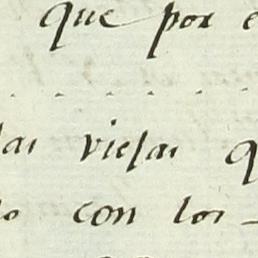 que por e
. . . . . .
las viejas q
lo con los -